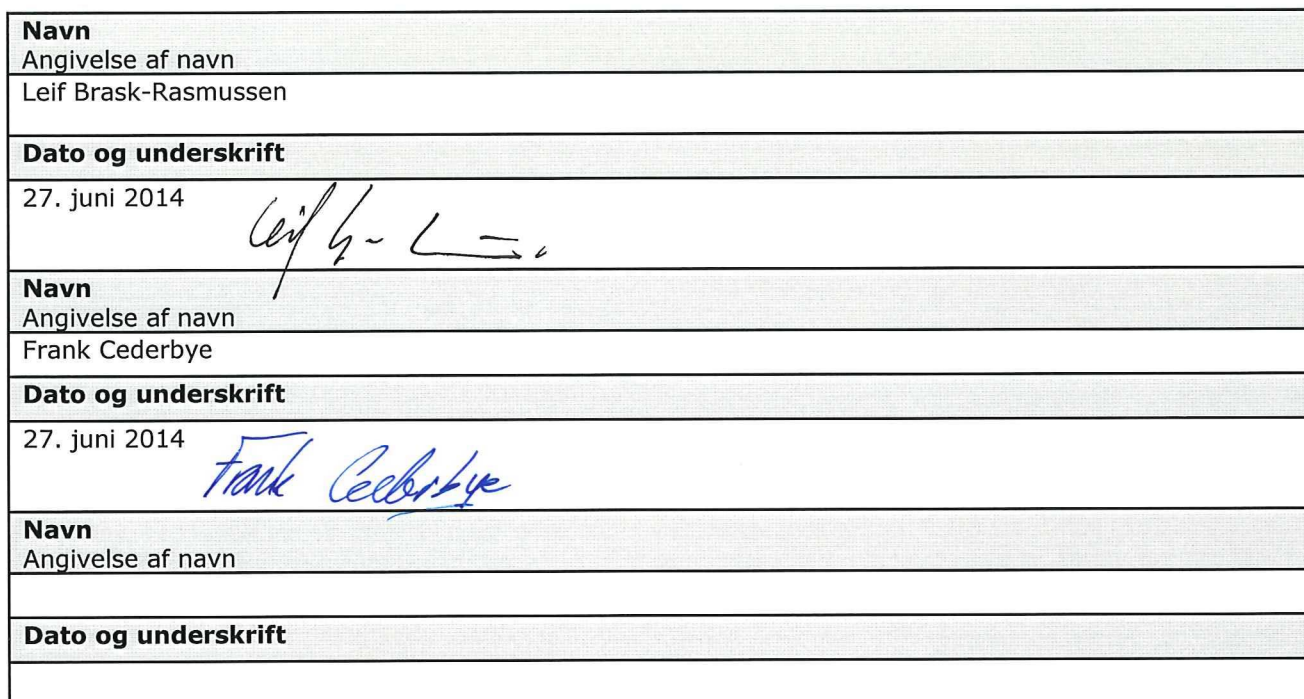 Navn
Angivelse af navn
Leif Brask-Rasmussen
Dato og underskrift
27. juni 2014
Leif
Navn
Angivelse af navn
Frank Cederbye
Dato og underskrift
27. juni 2014
Frank Cederbye
Navn
Angivelse af navn
Dato og underskrift